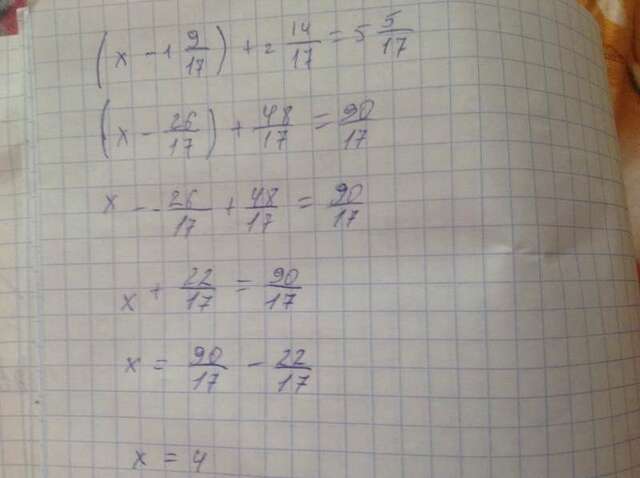 (x - 1 9/17) + 2 14/17 = 5 5/17
(x - 26/17) + 48/17 = 90/17
x - 26/17 + 48/17 = 90/17
x + 22/17 = 90/17
x = 90/17 - 22/17
x = 4